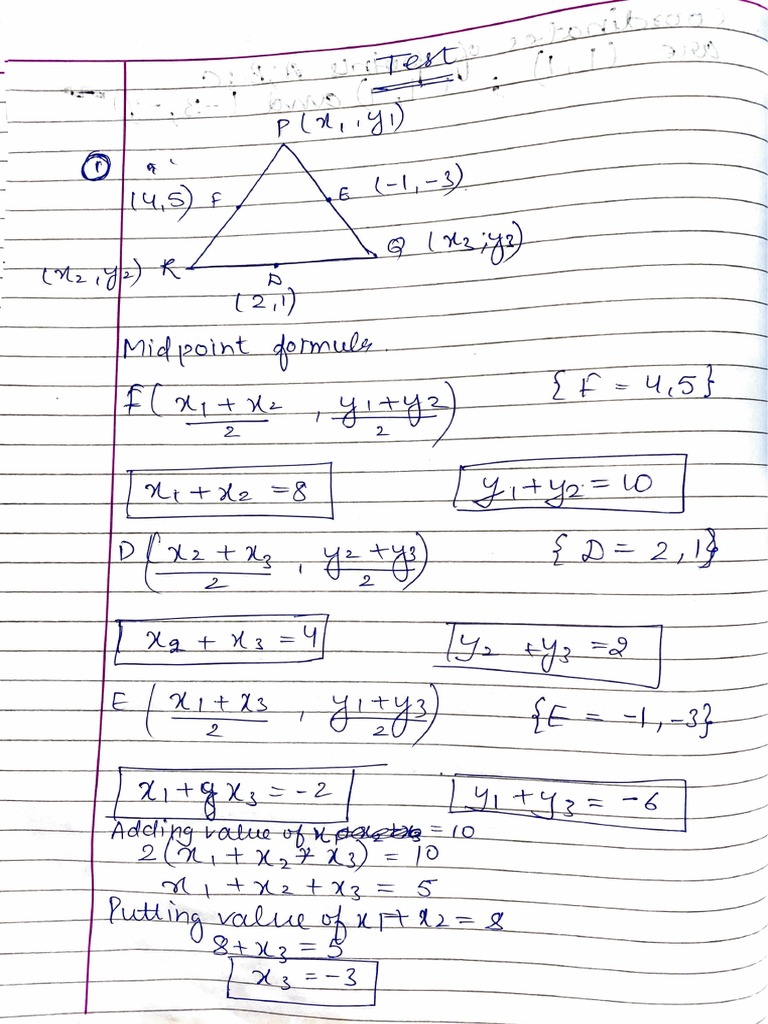 Test
P (x₁, y₁)
①
(4,5) F E (-1, -3)
(x₂, y₂) R Q (x₃, y₃)
D
(2,1)
Midpoint formula.
F ( x₁ + x₂ / 2 , y₁ + y₂ / 2 ) { F = 4,5}
x₁ + x₂ = 8 y₁ + y₂ = 10
D ( x₂ + x₃ / 2 , y₂ + y₃ / 2 ) { D = 2, 1}
x₂ + x₃ = 4 y₂ + y₃ = 2
E ( x₁ + x₃ / 2 , y₁ + y₃ / 2 ) {E = -1, -3}
x₁ + x₃ = -2 y₁ + y₃ = -6
Adding value of x = 10
2(x₁ + x₂ + x₃) = 10
x₁ + x₂ + x₃ = 5
Putting value of x₁ + x₂ = 8
8 + x₃ = 5
x₃ = -3